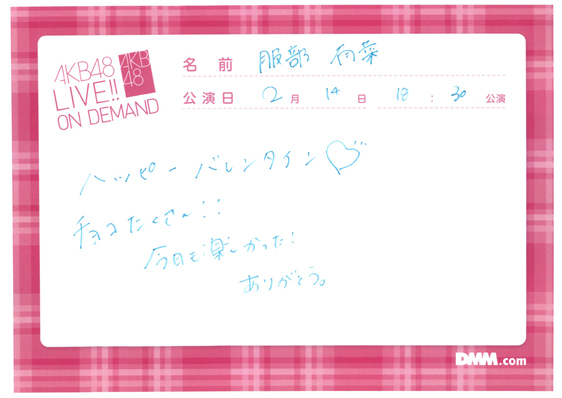 AKB48
LIVE!!
ON DEMAND
AKB
48
名前 服部 有菜
公演日 2月 14日 18:30 公演
ハッピーバレンタイン♡
チョコたくさん!!
今日も楽しかった!
ありがとう。
DMM.com